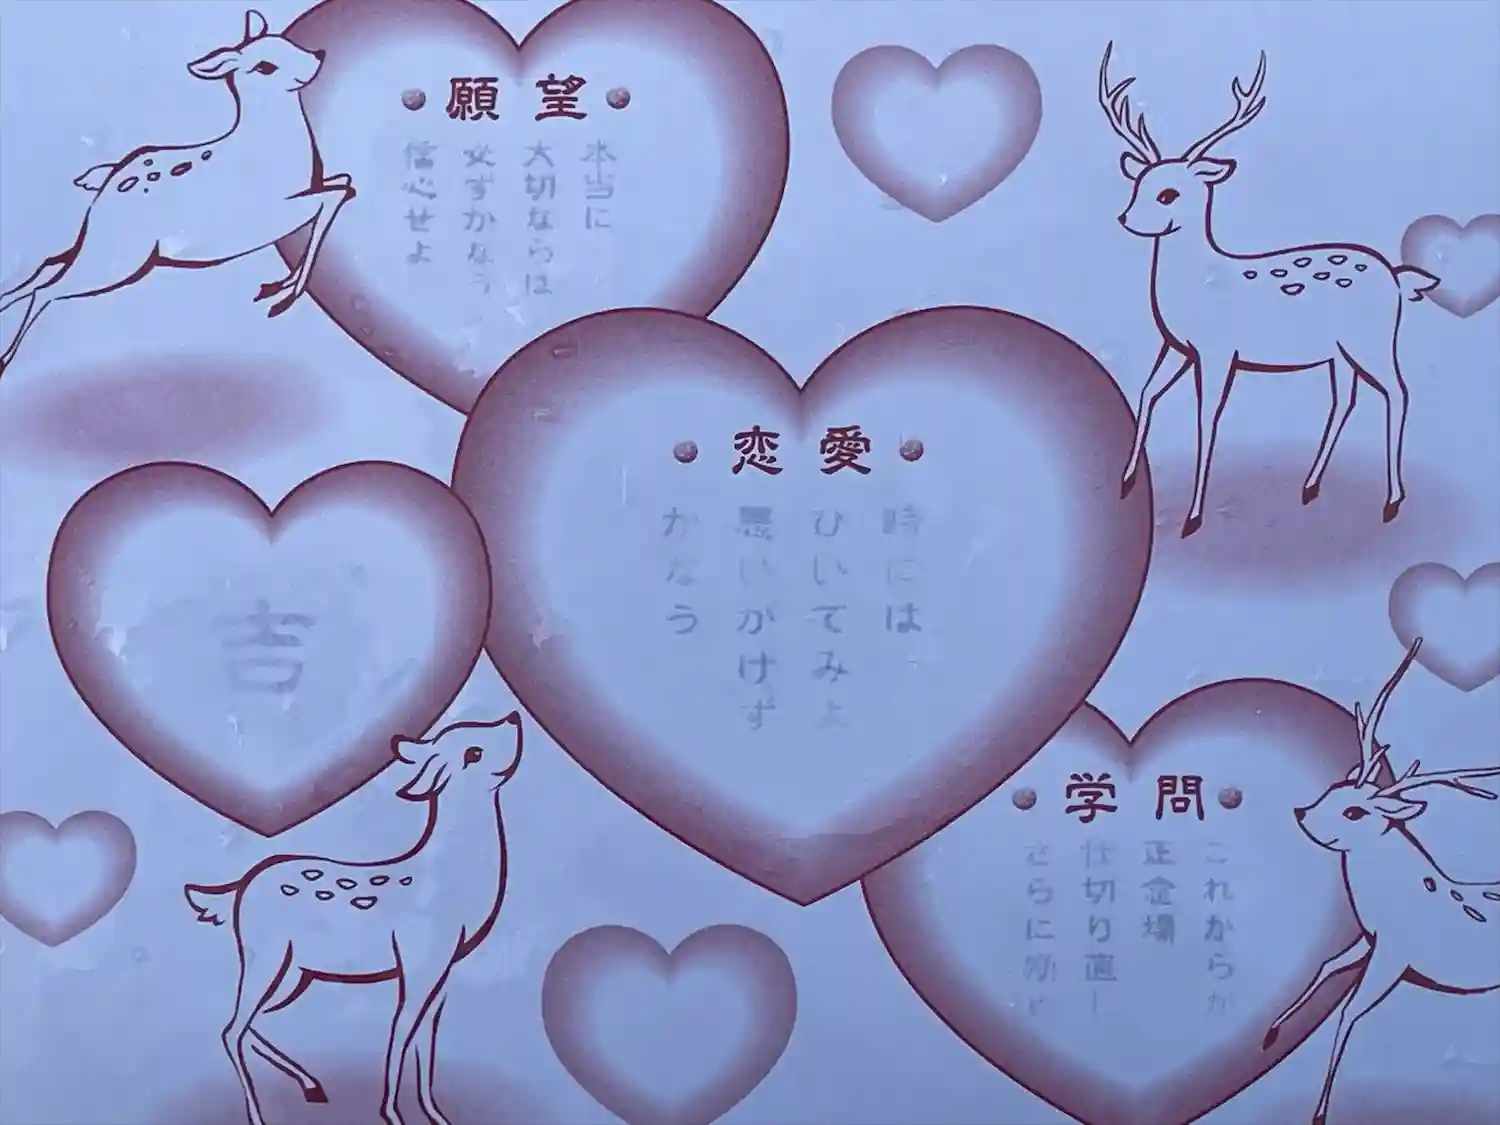 願望
本当に
大切ならは
必ずかなう
信心せよ
恋愛
時には
ひいてみよ
思いがけず
かなう
吉
学問
これからが
正念場
仕切り直し
さらに励め